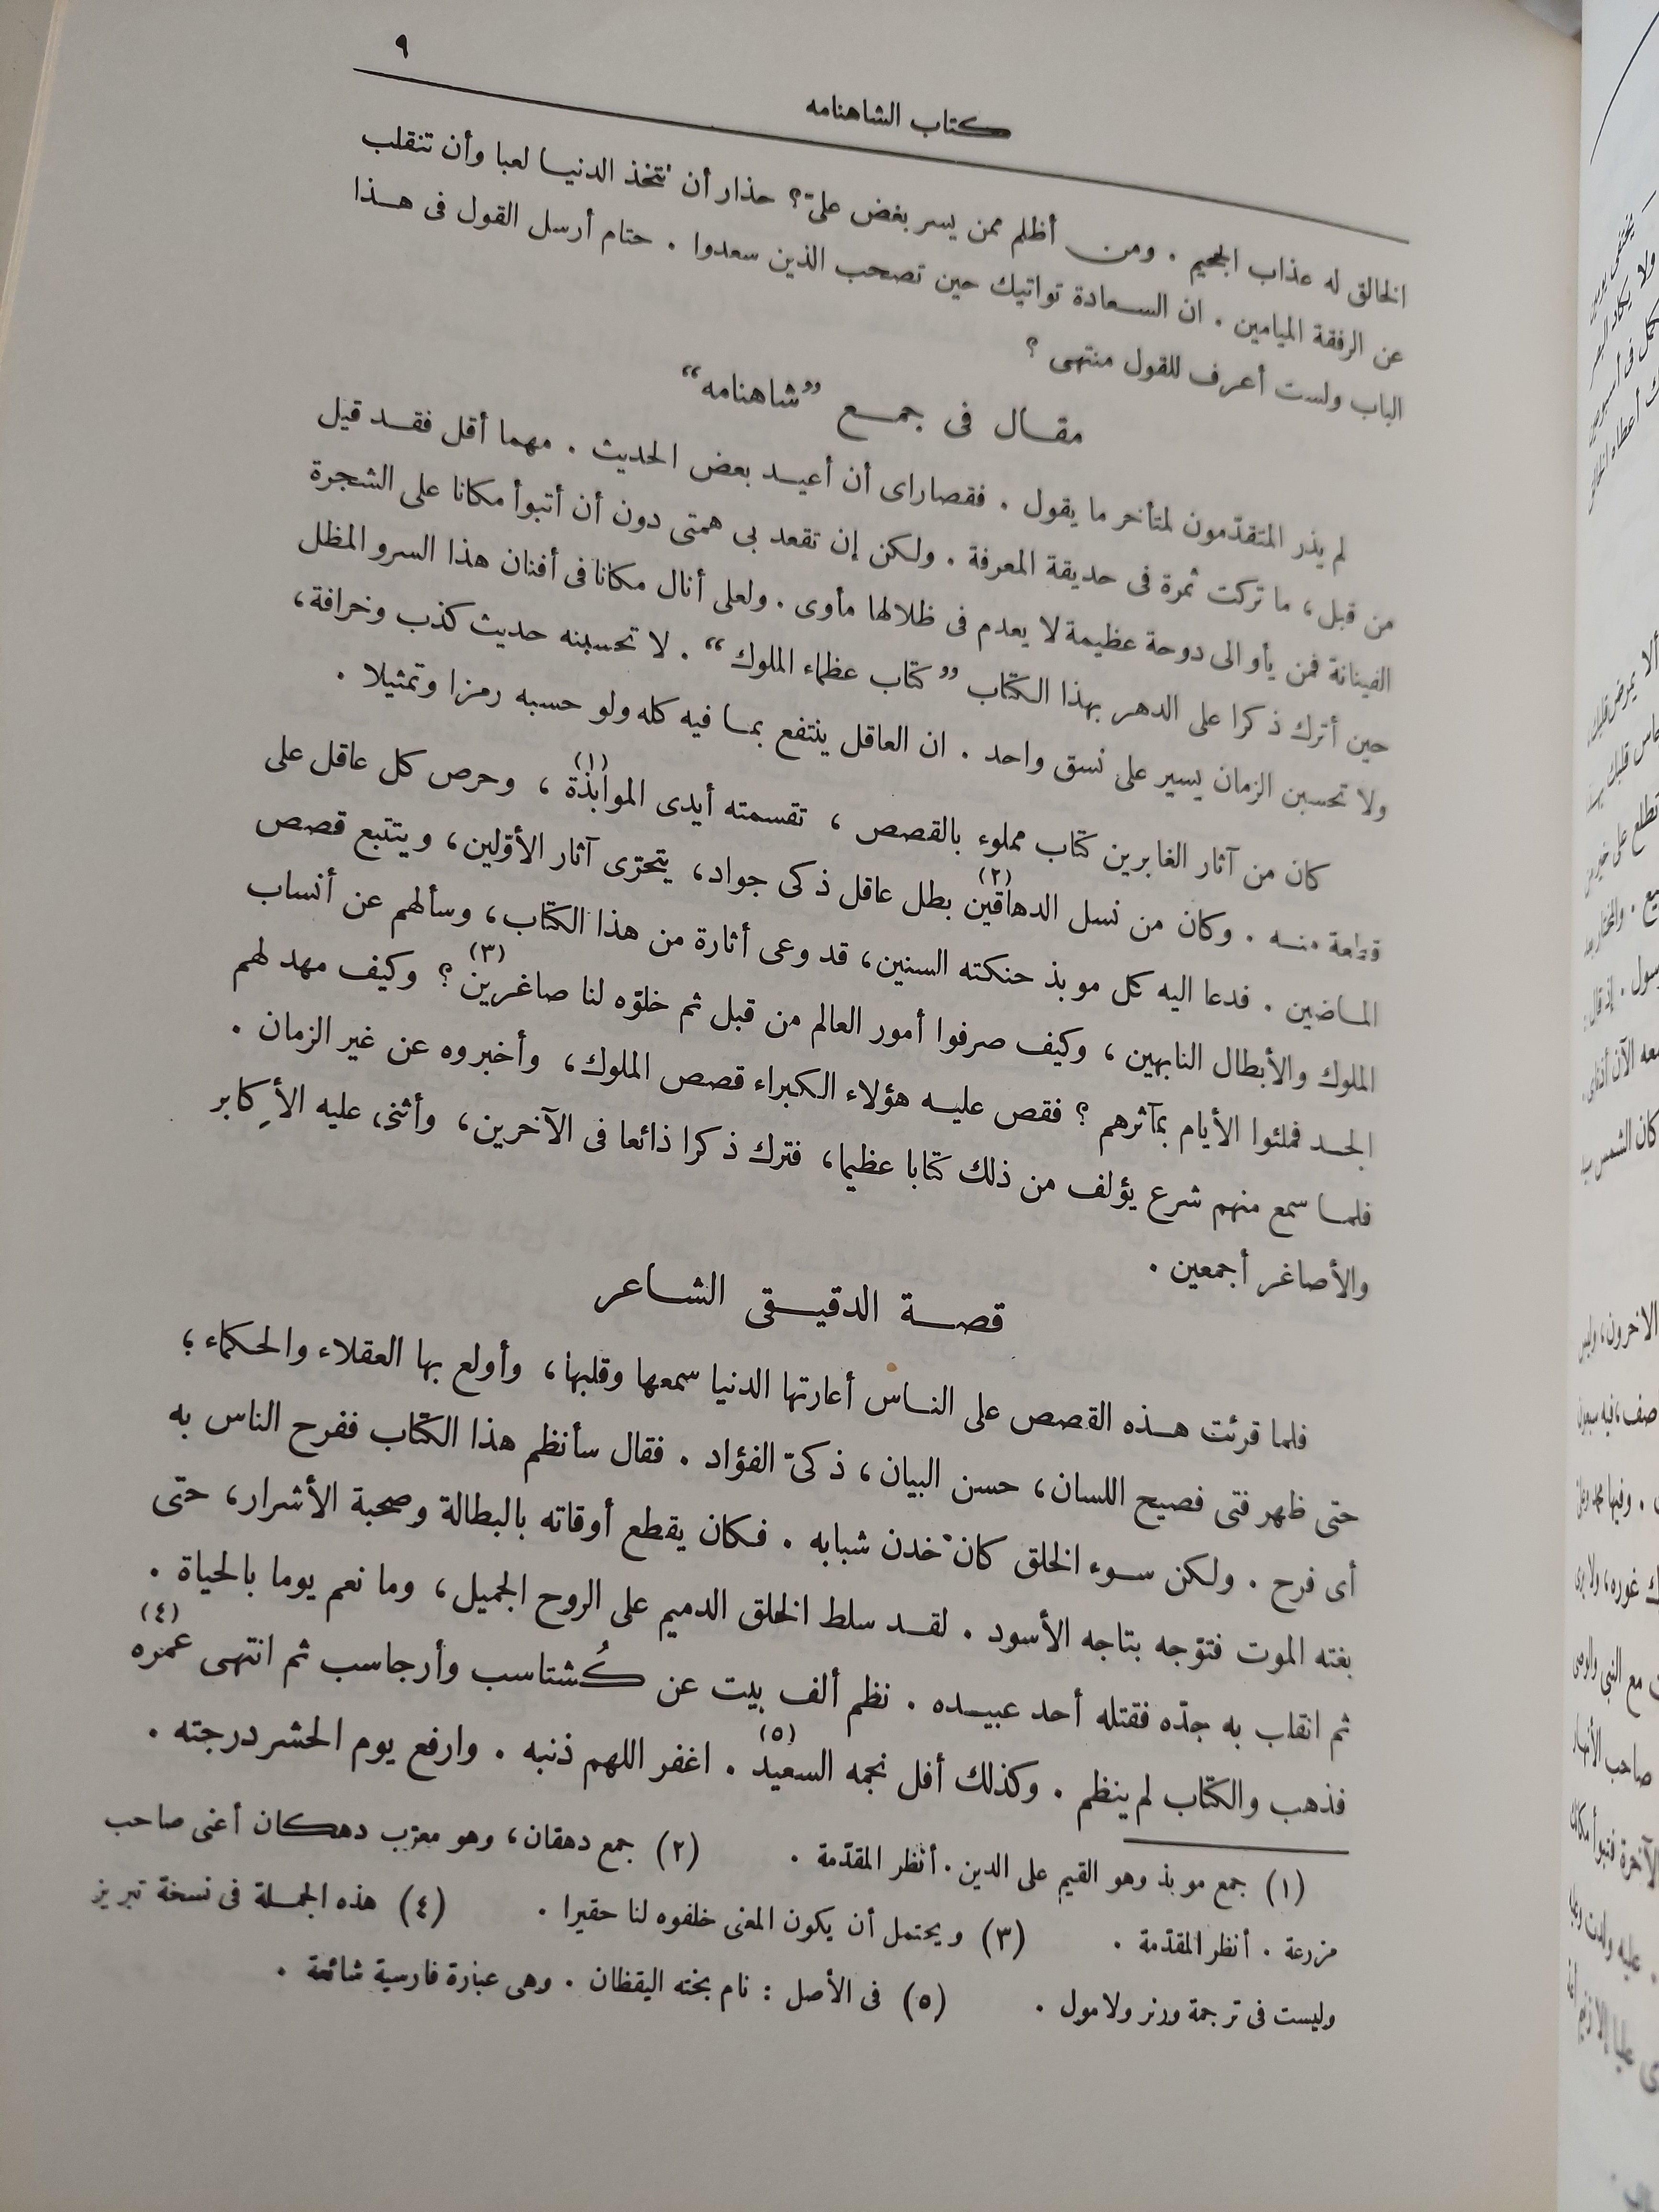 ٩
كتاب الشاهنامه
الخالق له عذاب الجحيم . ومن أظلم ممن يسر بغض علىّ؟ حذار أن تتخذ الدنيا لعبا وأن تنقلب
عن الرفقة الميامين . ان السعادة تواتيك حين تصحب الذين سعدوا . حتام أرسل القول فى هذا
الباب ولست أعرف للقول منتهى ؟
مقال فى جمع ”شاهنامه“
لم يذر المتقدّمون لمتأخر ما يقول . فقصاراى أن أعيد بعض الحديث . مهما أقل فقد قيل
من قبل ، ما تركت ثمرة فى حديقة المعرفة . ولكن إن تقعد بى همتى دون أن أتبوأ مكانا على الشجرة
الفينانة فمن يأو الى دوحة عظيمة لا يعدم فى ظلالها مأوى . ولعلى أنال مكانا فى أفنان هذا السرو المظل
حين أترك ذكرا على الدهر بهذا الكتاب ”كتاب عظماء الملوك“ . لا تحسبنه حديث كذب وخرافة ،
ولا تحسبن الزمان يسير على نسق واحد . ان العاقل ينتفع بما فيه كله ولو حسبه رمزا وتمثيلا .
كان من آثار الغابرين كتاب مملوء بالقصص ، تقسمته أيدى الموابذة (١) ، وحرص كل عاقل على
قطعة منه . وكان من نسل الدهاقين (٢) بطل عاقل ذكى جواد ، يتحرّى آثار الأوّلين ، ويتتبع قصص
الماضين . فدعا اليه كل موبذ حنكته السنين ، قد وعى أثارة من هذا الكتاب ، وسألهم عن أنساب
الملوك والأبطال النابهين ، وكيف صرفوا أمور العالم من قبل ثم خلوّه لنا صاغرين (٣) ؟ وكيف مهد لهم
الجد فملئوا الأيام بمآثرهم ؟ فقص عليه هؤلاء الكبراء قصص الملوك ، وأخبروه عن غير الزمان .
فلما سمع منهم شرع يؤلف من ذلك كتابا عظيما ، فترك ذكرا ذائعا فى الآخرين ، وأثنى عليه الأكابر
والأصاغر أجمعين .
قصة الدقيقى الشاعر
فلما قرئت هذه القصص على الناس أعارتها الدنيا سمعها وقلبها ، وأولع بها العقلاء والحكماء ؛
حتى ظهر فتى فصيح اللسان ، حسن البيان ، ذكىّ الفؤاد . فقال سأنظم هذا الكتاب ففرح الناس به
أى فرح . ولكن سوء الخلق كان خدن شبابه . فكان يقطع أوقاته بالبطالة وصحبة الأشرار ، حتى
بغته الموت فتوّجه بتاجه الأسود . لقد سلط الخلق الدميم على الروح الجميل ، وما نعم يوما بالحياة .
ثم انقلب به جدّه فقتله أحد عبيده . نظم ألف بيت عن كُشتاسب وأرجاسب ثم انتهى عمره (٤)
فذهب والكتاب لم ينظم . وكذلك أفل نجمه السعيد (٥) . اغفر اللهم ذنبه . وارفع يوم الحشر درجته .
(١) جمع موبذ وهو القيم على الدين . أنظر المقدّمة . (٢) جمع دهقان ، وهو معرّب دهكان أعنى صاحب
مزرعة . أنظر المقدّمة . (٣) ويحتمل أن يكون المعنى خلفوه لنا حقيرا . (٤) هذه الجملة فى نسخة تبريز
وليست فى ترجمة ورنر ولا مول . (٥) فى الأصل : نام بخته اليقظان . وهى عبارة فارسية شائعة .